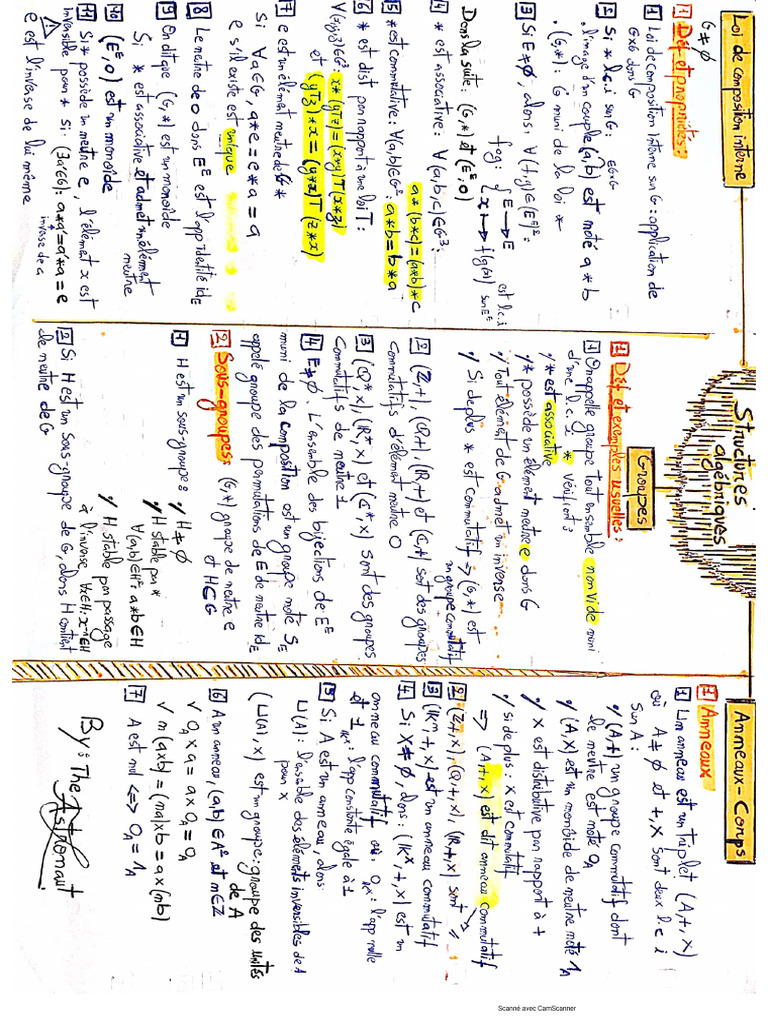 Structures
algébriques
Loi de composition interne
G ≠ ∅
1 Déf et propriétés :
1 Loi de composition interne sur G : application de
G×G dans G
2 Si * l.c.i sur G : G×G
. l'image d'un couple (a,b) est noté a * b
. (G,*) : G muni de la loi *
3 Si E ≠ ∅, alors : ∀(f,g) ∈ (E^E)² :
fog : { E → E
x ↦ f(g(x)) est l.c.i sur E^E
Dans la suite, (G,*) et (E^E, o)
4 * est associative : ∀(a,b,c) ∈ G³ :
a * (b * c) = (a * b) * c
5 * est commutative : ∀(a,b) ∈ G² : a * b = b * a
6 * est dist par rapport à une loi T :
∀(x,y,z) ∈ G³ : x * (yTz) = (x*y) T (x*z)
et (yTz) * x = (y*x) T (z*x)
7 e est un élémat neutre de G *
Si ∀a ∈ G, a * e = e * a = a
e s'il existe est unique
8 Le neutre de o dans E^E est l'app identité id_E
9 On dit que (G,*) est un monoïde
Si * est associative et admet un élémant
neutre
10 (E^E, o) est un monoïde
11 Si * possède un neutre e, l'élémat x est
inversible pour * si : (∃a'∈G) : a * a' = a' * a = e
inverse de a
e est l'invese de lui même
Groupes
1 Déf et exemples usuelles :
1 On appelle groupe tout ensemble non vide muni
d'une l.c.i * vérifiant :
✓ * est associative
✓ * possède un élément neutre e dans G
✓ Tout élément de G admet un inverse
✓ Si de plus * est commutatif => (G,*) est
un groupe commutatif
2 (Z,+), (Q,+), (R,+) et (C,+) sont des groupes
commutatifs d'élément neutre 0
3 (Q*,×), (R*,×) et (C*,×) sont des groupes
commutatifs de neutre 1
4 E ≠ ∅. L'ensemble des bijections de E^E
muni de la composition est un groupe noté S_E
appelé groupe des permutations de E de neutre id_E
2 Sous-groupes : (G,*) groupe de neutre e
et H⊂G
1 H est un sous-groupe : ✓ H ≠ ∅
✓ H stable par *
∀(a,b) ∈ H² : a * b ∈ H
✓ H stable par passage
à l'inverse ∀x∈H : x⁻¹∈H
2 Si H est un sous-groupe de G, alors H contient
le neutre de G
Anneaux - Corps
1 Anneaux
1 Un anneau est un triplet (A,+,×)
où A ≠ ∅ et +, × sont deux l.c.i
sur A :
✓ (A,+) un groupe commutatif dont
le neutre est noté 0_A
✓ (A,×) est un monoïde de neutre noté 1_A
✓ × est distributive par rapport à +
✓ si de plus : × est commutatif
=> (A,+,×) est dit anneau commutatif
2 (Z,+,×), (Q,+,×), (R,+,×) sont
3 (K^n,+,×) est un anneau commutatif
4 Si X ≠ ∅, alors : (K^X,+,×) est un
anneau commutatif où 0 : l'app nulle
et 1 : l'app constante égale à 1
5 Si A est un anneau, alors :
U(A) : l'ensemble des éléments inversibles de A
pour ×
(U(A),×) est un groupe : groupe des unités
de A
6 A un anneau, (a,b) ∈ A² et m∈Z
✓ 0_A × a = a × 0_A = 0_A
✓ m(a×b) = (ma)×b = a×(mb)
7 A est nul <=> 0_A = 1_A
By : The
Astronaut
Scanné avec CamScanner